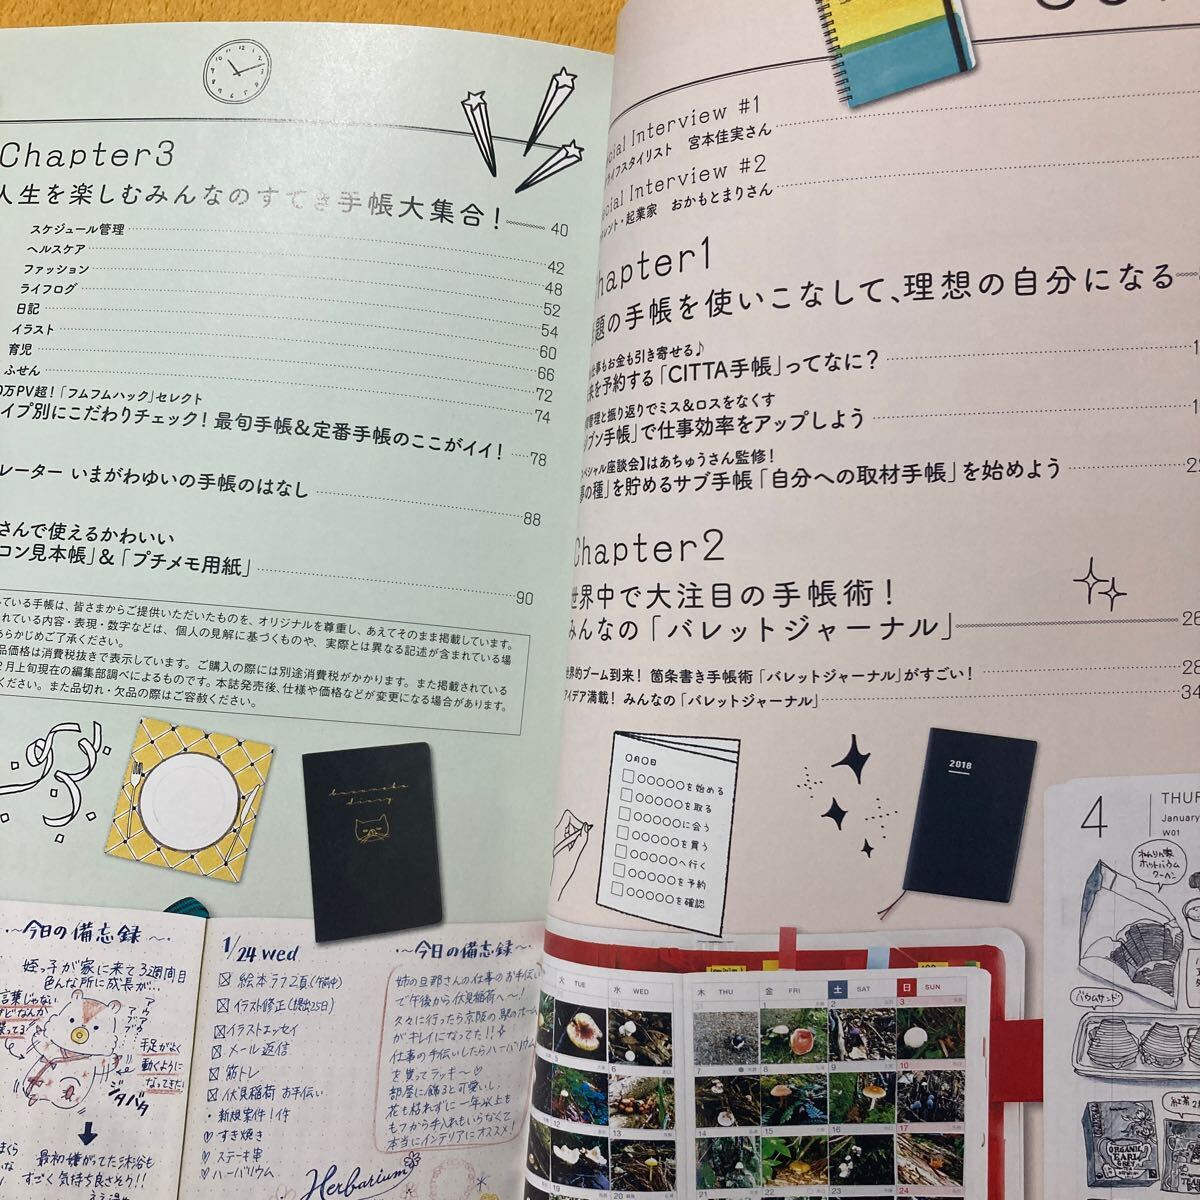 Chapter3
人生を楽しむみんなのすてき手帳大集合! 40
スケジュール管理 42
ヘルスケア 48
ファッション 52
ライフログ 54
日記 60
イラスト 66
育児 72
ふせん 74
0万PV超!「フムフムハック」セレクト
イプ別にこだわりチェック! 最旬手帳&定番手帳のここがイイ! 78
レーター いまがわゆいの手帳のはなし 88
さんで使えるかわいい
コン見本帳」&「プチメモ用紙」 90
ている手帳は、皆さまからご提供いただいたものを、オリジナルを尊重し、あえてそのまま掲載しています。
されている内容・表現・数字などは、個人の見解に基づくものや、実際とは異なる記述が含まれている場
あらかじめご了承ください。
品価格は消費税抜きで表示しています。ご購入の際には別途消費税がかかります。また掲載されている
2月上旬現在の編集部調べによるものです。本誌発売後、仕様や価格などが変更になる場合があります。
ください。また品切れ・欠品の際はご容赦ください。
diary
～今日の備忘録～
姪っ子が家に来て3週間目
色んな所に成長が…
言葉じゃない
けどなんか
手足がよく
動くように
なってきた
ジタバタ
最初嫌がってた沐浴も
すごく気持ち良さそう!!
1/24 wed
絵本ラフ2頁(午前中)
イラスト修正(提出25日)
イラストエッセイ
メール返信
筋トレ
伏見稲荷 お手伝い
・新規案件1件
♡すき焼き
♡ステーキ串
♡ハーバリウム
～今日の備忘録～
姉の旦那さんの仕事のお手伝い
で午後から伏見稲荷へ～!
久々に行ったら京阪の駅のホーム
がキレイになってた!!
仕事の手伝いしたらハーバリウム
を貰ってラッキー♡
部屋に飾ると可愛いし
花も枯れずに一年以上も
もつから手入れいらなくて
本当にインテリアにオススメ!
Herbarium
cial Interview #1
イフスタイリスト 宮本佳実さん
cial Interview #2
レント・起業家 おかもとまりさん
hapter1
題の手帳を使いこなして、理想の自分になる
仕事もお金も引き寄せる♪
来を予約する「CITTA手帳」ってなに? 1
管理と振り返りでミス&ロスをなくす
ジブン手帳」で仕事効率をアップしよう 1
ペシャル座談会】はあちゅうさん監修!
夢の種」を貯めるサブ手帳「自分への取材手帳」を始めよう 2
Chapter2
世界中で大注目の手帳術!
みんなの「バレットジャーナル」 26
世界的ブーム到来! 箇条書き手帳術「バレットジャーナル」がすごい! 28
アイデア満載! みんなの「バレットジャーナル」 34
○月○日
○○○○○を始める
○○○○○を取る
○○○○○に会う
○○○○○を買う
○○○○○へ行く
○○○○○を予約
○○○○○を確認
2018
4 THUR
January
W01
ねんりん家
ホットバウム
クーヘン
バウムサンド
紅茶
ORGANIC
EARL
GREY
火 TUE 水 WED 木 THU 金 FRI 土 SAT 日 SUN